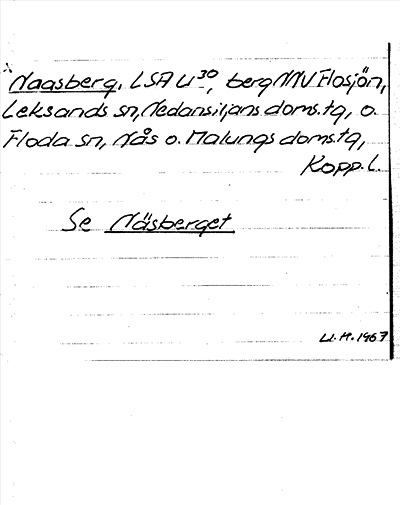 Naasberg, LSA U 30, berg NNV Flosjön,
Leksands sn, Nedansiljans doms.tg, o.
Floda sn, Nås o. Malungs doms.tg,
Kopp. L.
Se Näsberget
U.H. 1967